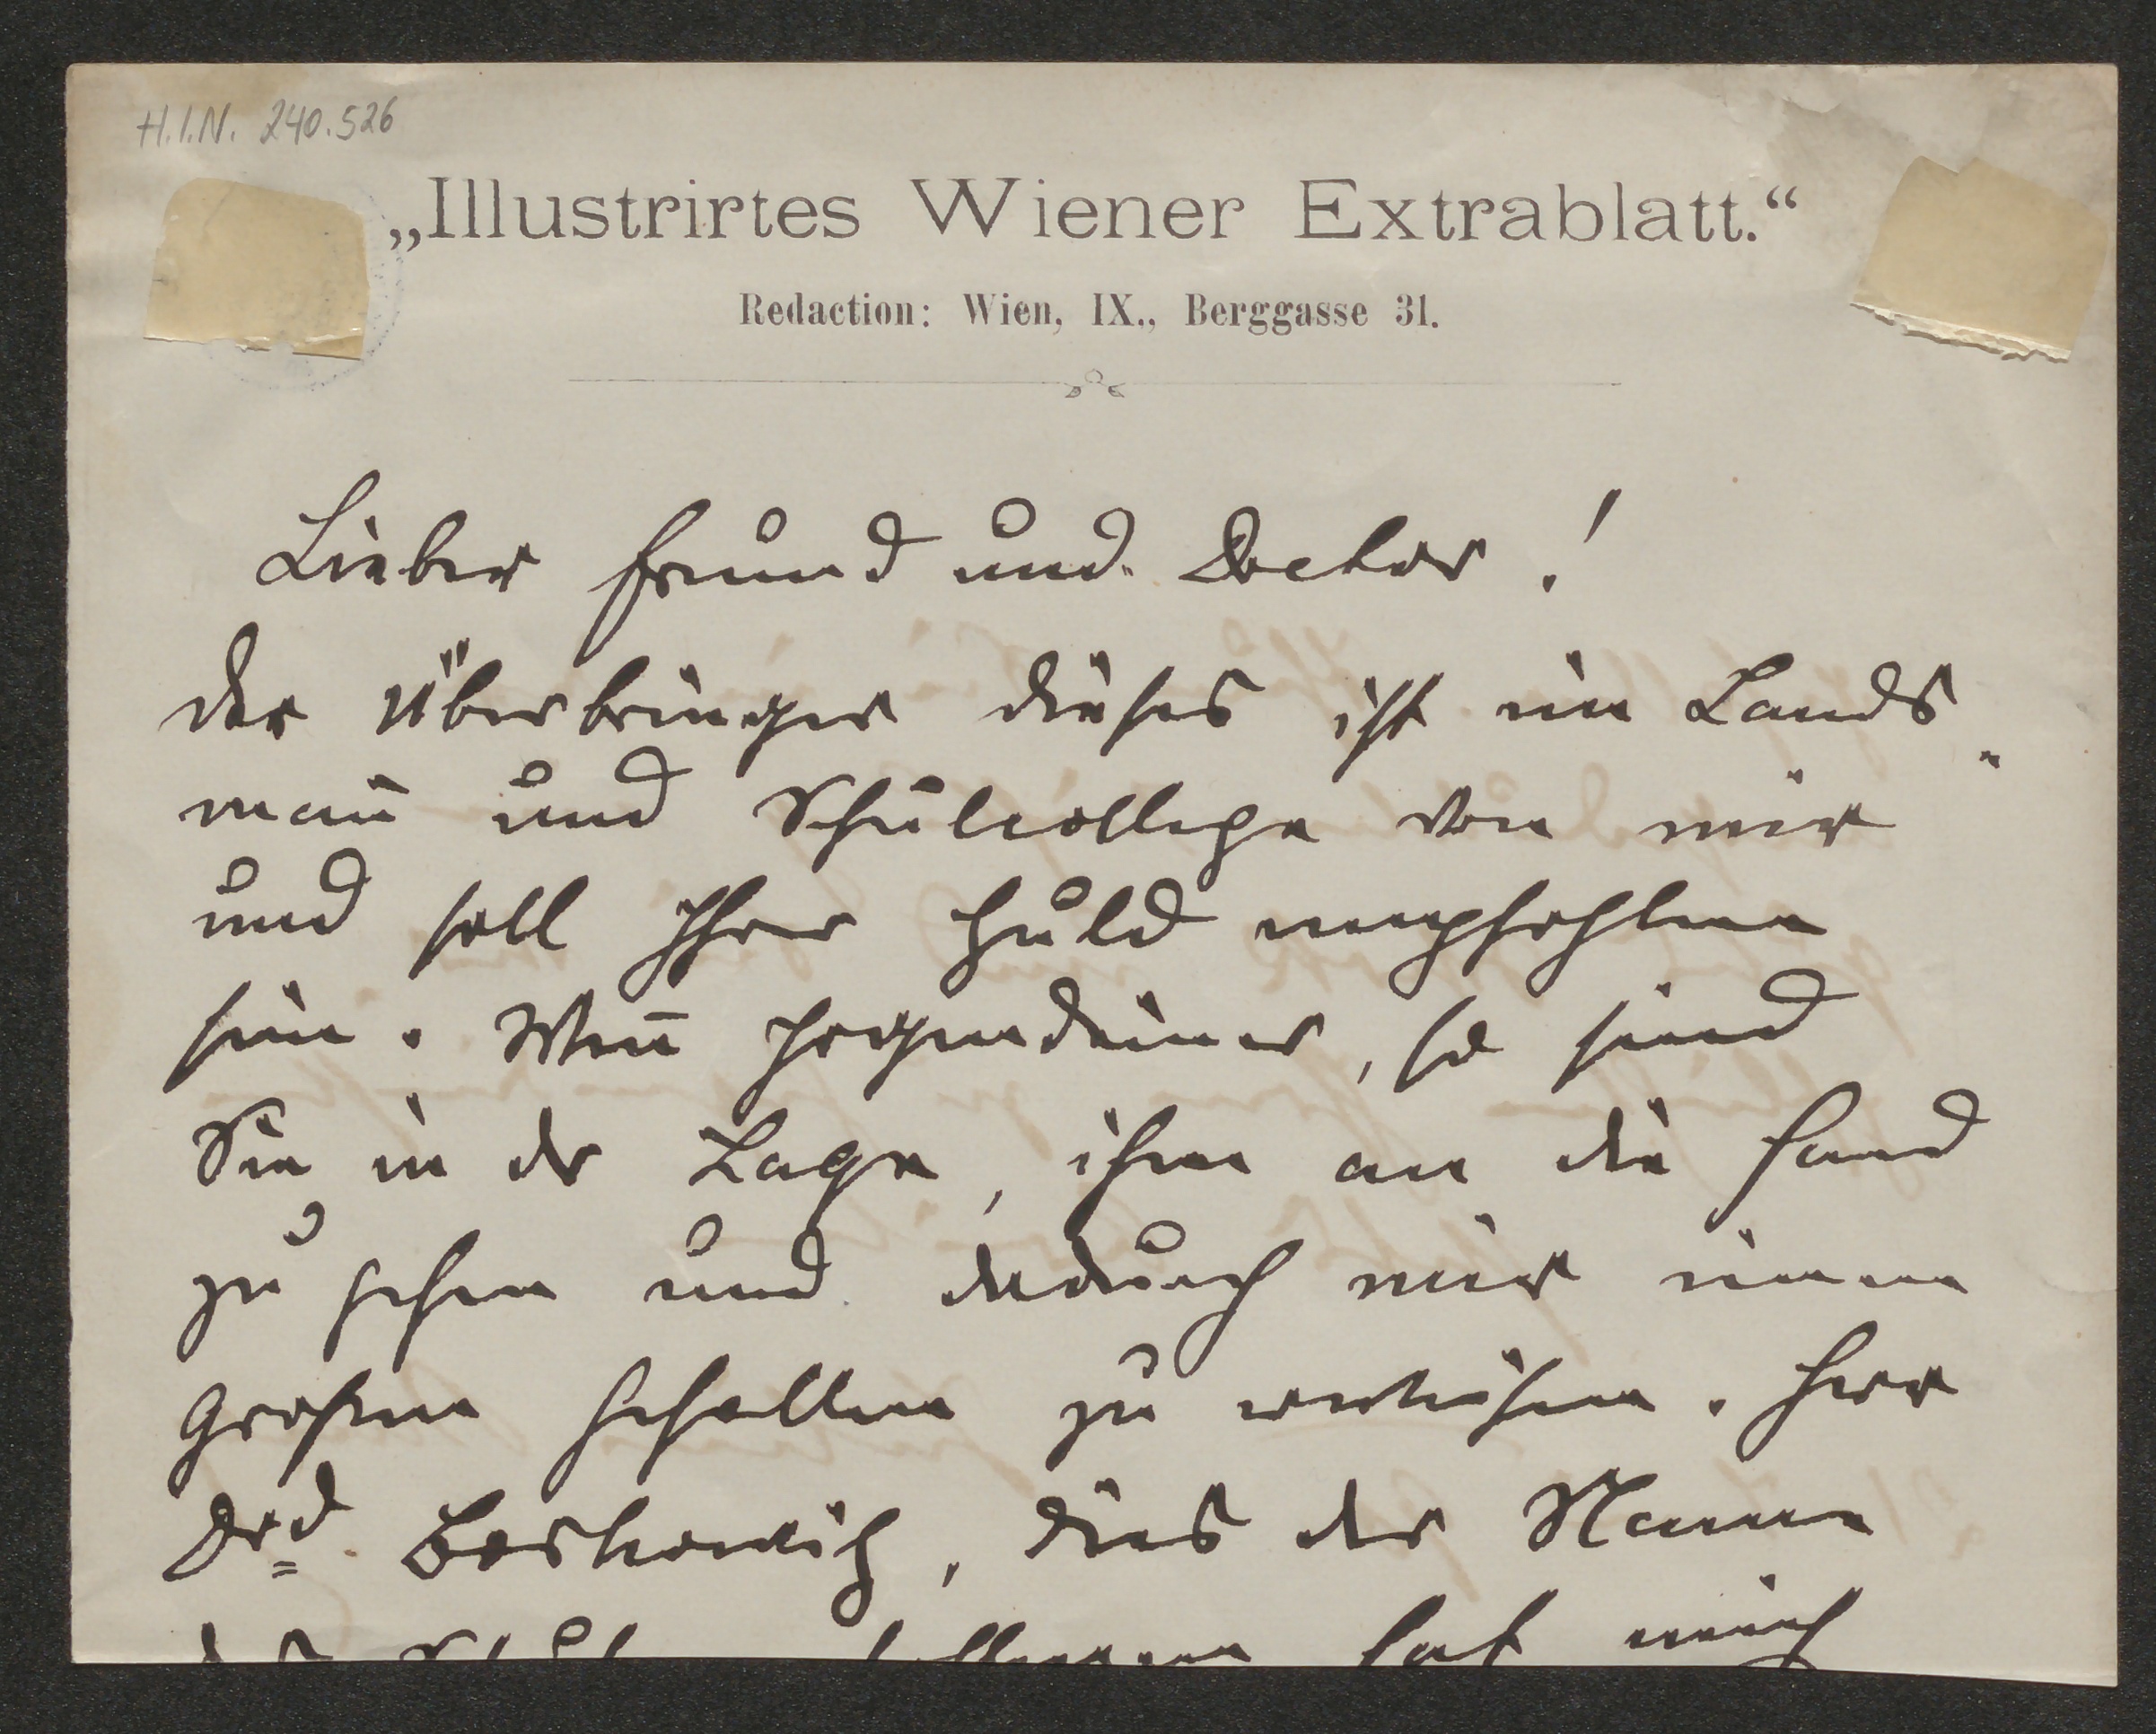 H.I.N. 240.526
„Illustrirtes Wiener Extrablatt.“
Redaction: Wien, IX., Berggasse 31.
Lieber Freund und Doctor!
der Überbringer dieses ist ein Lands-
mañ und Schulcollege von mir
und soll Ihrer Huld empfohlen
sein. Weñ irgendeiner, so sind
Sie in der Lage, ihm an die Hand
zu gehen und dadurch mir einen
großen Gefallen zu erweisen. Herr
Drd. Boskowitz, dies der Name
hat mich